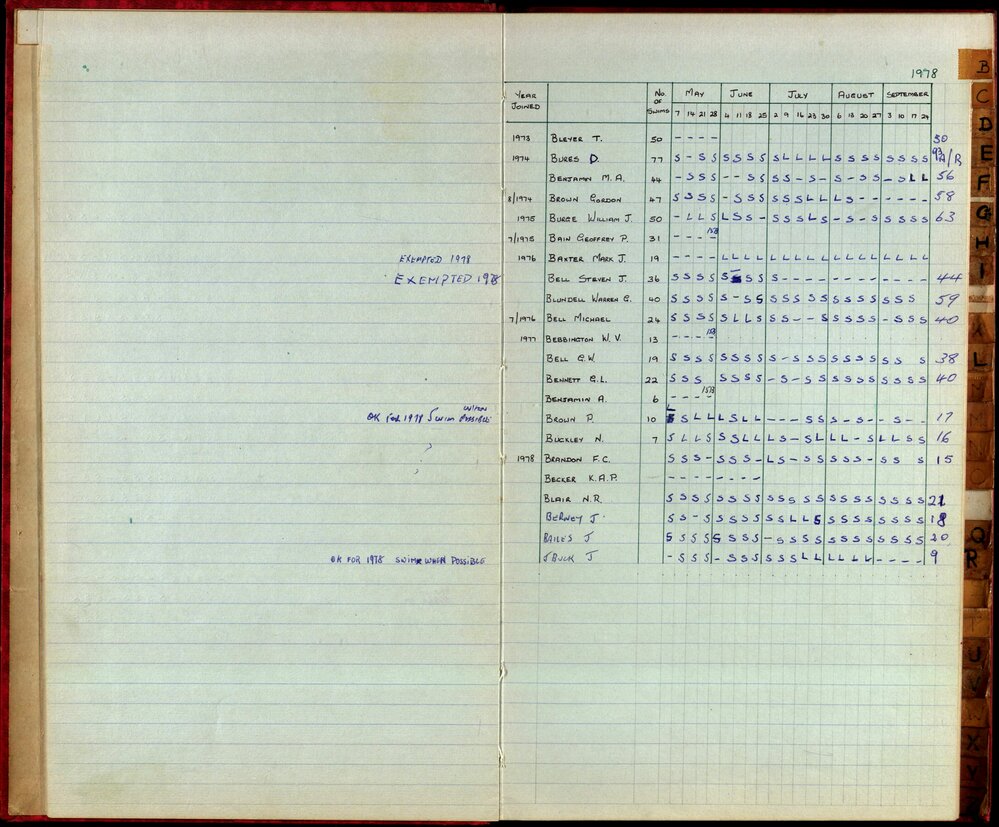 1978
YEAR JOINED No. OF SWIMS MAY JUNE JULY AUGUST SEPTEMBER
7 14 21 28 4 11 18 25 2 9 16 23 30 6 13 20 27 3 10 17 24
1973 BLEYER T. 50 - - - - 50
1974 BURES D. 77 S - S S S S S S S L L L L S S S S S S S S
BENJAMIN M.A. 44 - S S S - - S S S S - S - S - S S - S L L 56
8/1974 BROWN GORDON 47 S S S S - S S S S S S L L L S - - - - - - 58
1975 BURGE WILLIAM J. 50 - L L S L S S - S S S L S S - S - S S S S 63
7/1975 BAIN GEOFFREY P. 31 - - - -
EXEMPTED 1978 1976 BAXTER MARK J. 19 - - - - L L L L L L L L L L L L L L L L L
EXEMPTED 1978 BELL STEVEN J. 36 S S S S S S S S S - - - - - - - - - - - - 44
BLUNDELL WARREN G. 40 S S S S S - S S S S S S S S S S S S S S 59
7/1976 BELL MICHAEL 24 S S S S S L L S S S - - S S S S S - S S S 40
1977 BEBBINGTON W.V. 13 - - - -
BELL G.W. 19 S S S S S S S S S - S S S S S S S S S S 38
BENNETT G.L. 22 S S S S S S S - S - S S S S S S S S S S 40
BENJAMIN A. 6 - - - -
OK FOR 1978 SWIM WHEN POSSIBLE BROWN P. 10 S S L L L S L L - - - S S S - S - - S - - 17
BUCKLEY N. 7 S L L S S S L L L S - S L L L - S L L S S 16
1978 BRANDON F.C. S S S - S S S - L S - S S S S S - S S S 15
BECKER K.A.P. - - - - - - - -
BLAIR N.R. S S S S S S S S S S S S S S S S S S S S S 21
BERNEY J. S S - S S S S S S S L L S S S S S S S S S 18
BAILES J S S S S S S S S - S S S S S S S S S S S S 20
OK FOR 1978 SWIM WHEN POSSIBLE BUCK J - S S S - S S S S S S L L L L L L - - - - 9
B
C
D
E
F
G
H
I
K
L
M
N
O
Q
R
T
U
V
W
X
Y